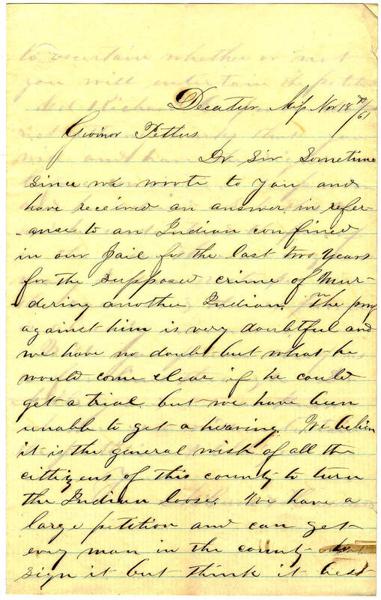 Decatur Miss Nov 18th/61
Govinor Pettus
Dr Sir Sometime
Since we wrote to you and
have received an answer in refer-
ance to an Indian confined
in our Jail for the last two years
for the supposed crime of Mur-
dering another Indian. The
against him is very doubtful and
we have no doubt but what he
would come clear if he could
get a trial but we have been
unable to get a hearing. We believe
it is the general wish of all the
cittizens of this county to turn
the Indian loose. We have a
large petition and can get
evry man in the county to
sign it but think it best